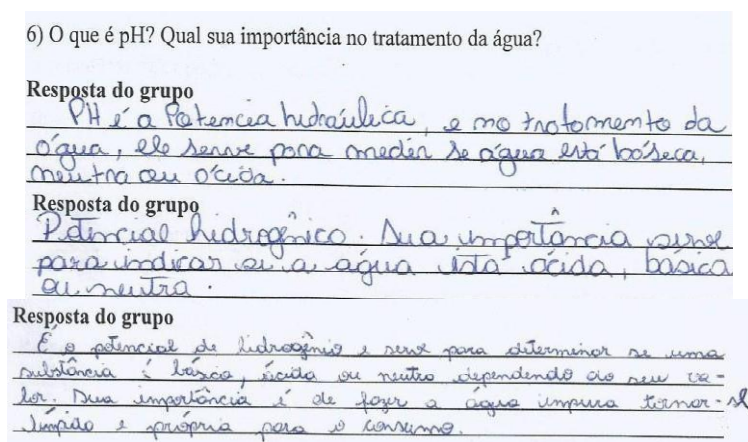 6) O que é pH? Qual sua importância no tratamento da água?
Resposta do grupo
PH é a Potencia hidraúlica, e no tratamento da
água, ele serve para medir se água está báseca,
neutra ou ácida.
Resposta do grupo
Potencial hidrogênico. Sua importância serve
para indicar se a água está ácida, básica
ou neutra.
Resposta do grupo
É o potencial de hidrogênio e serve para determinar se uma
substância é básica, ácida ou neutra dependendo do seu va-
lor. Sua importância é de fazer a água impura tornar-se
límpida e própria para o consumo.